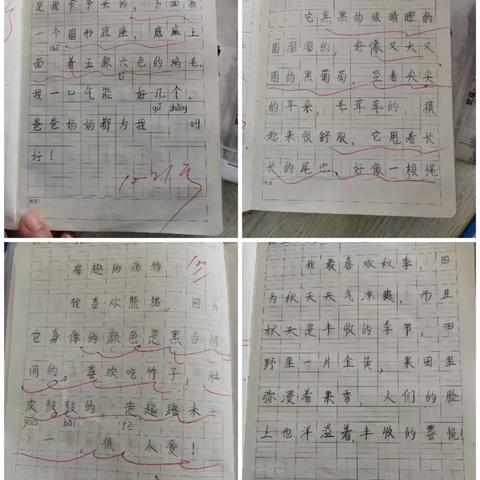 是我爷爷买的，下面有
一个圆形底座，底座上
面 着五颜六色的鸡毛。
我一口气能 好几个。
yǔ zhāng
爸爸妈妈都为我 叫
好！
它黑黑的眼睛瞪的
圆溜溜的，好像又大又
圆的黑葡萄。竖着尖尖
的耳朵，毛茸茸的，摸
起来很舒服。它甩着长
长的尾巴，好像一根绳
有趣的动物
100
我喜欢熊猫，因为
它身体的颜色是黑白相
间的。喜欢吃竹子，肚
皮鼓鼓的，走起路来一
yáo bǎi
一 ，很 人爱！
我最喜欢秋季，因
为秋天天气凉爽，而且
秋天是丰收的季节，田
野里一片金黄，果园里
弥漫着果香，人们的脸
上也洋溢着丰收的喜悦！